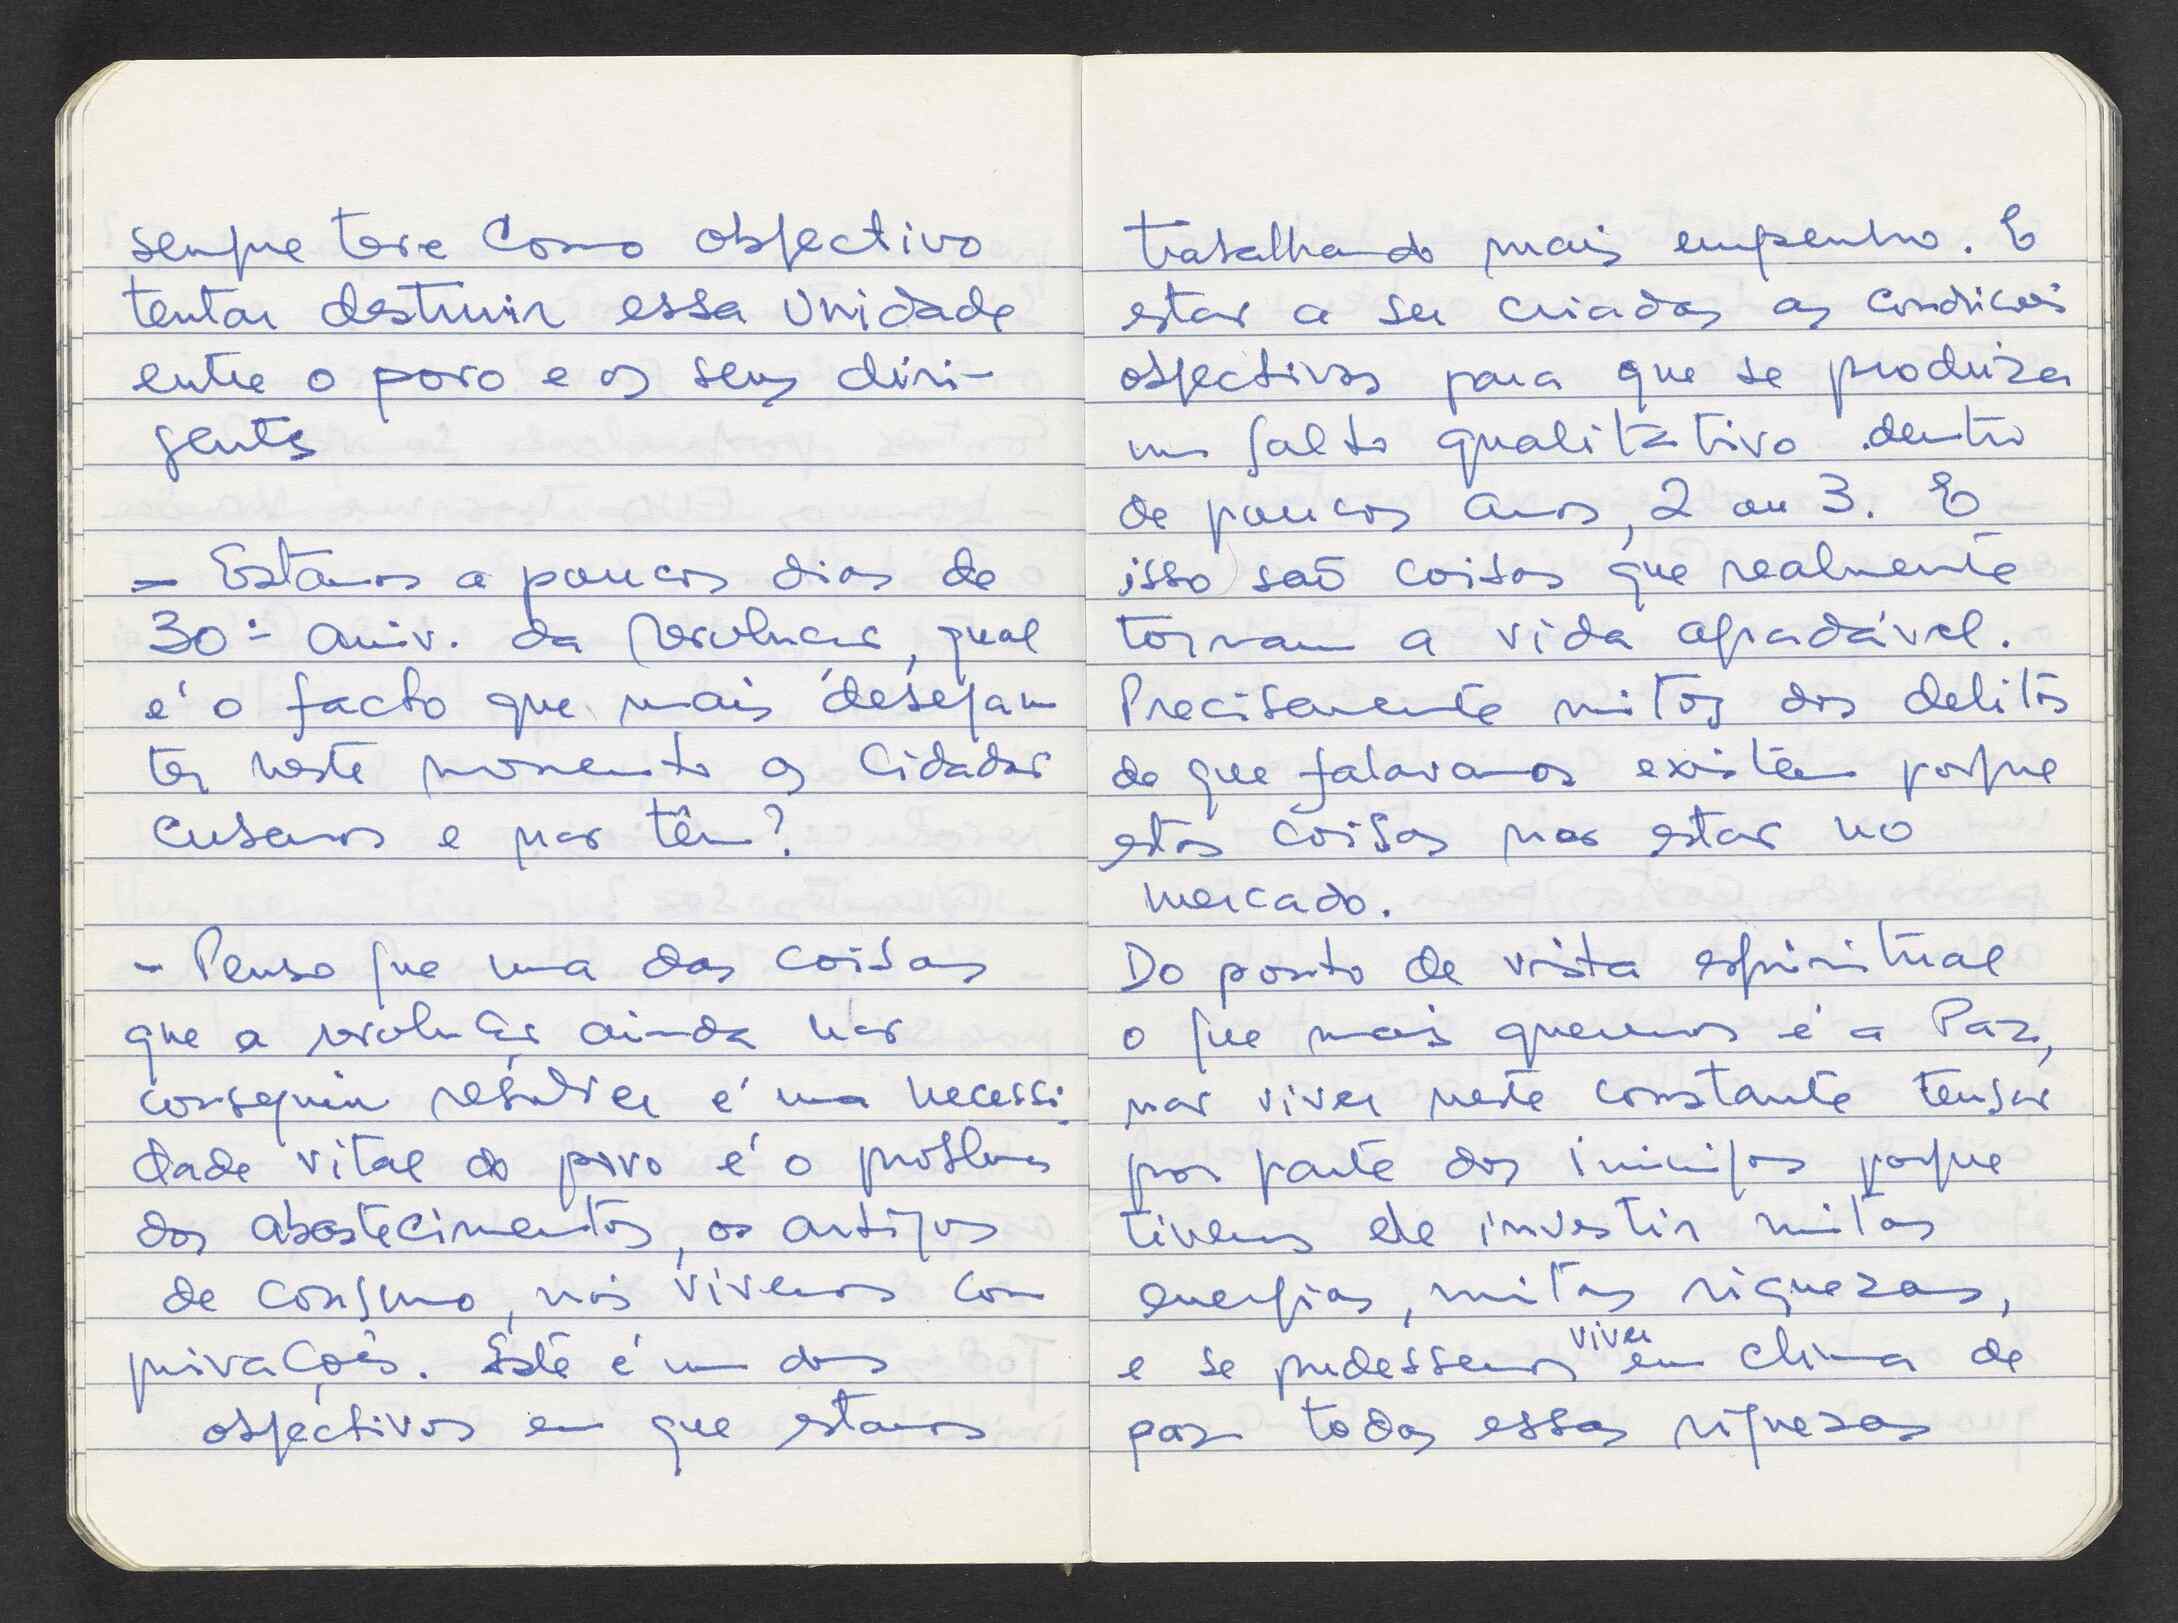 sempre teve como objectivo
tentar destruir essa Unidade
entre o povo e os seus diri-
gentes
- Estamos a poucos dias do
30º aniv. da Revolução, qual
é o facto que mais desejam
ter neste momento os cidadãos
cubanos e não têm?
- Penso que uma das coisas
que a revolução ainda não
conseguiu resolver e é uma necessi
dade vital do povo é o problema
dos abastecimentos, os artigos
de consumo, nós vivemos com
privações. Este é um dos
objectivos em que estamos
trabalhando mais empenho. E
estão a ser criadas as condições
objectivas para que se produza
um salto qualitativo dentro
de poucos anos, 2 ou 3. E
isso são coisas que realmente
tornam a vida agradável.
Precisamente mitos dos delitos
de que falavamos existem porque
estas coisas não estão no
mercado.
Do ponto de vista espiritual
o que mais queremos é a Paz,
não viver neste constante tensão
por parte dos inimigos porque
tivemos de investir mitas
energias, mitas riquezas,
e se pudessemos viver em clima de
paz todas essas riquezas